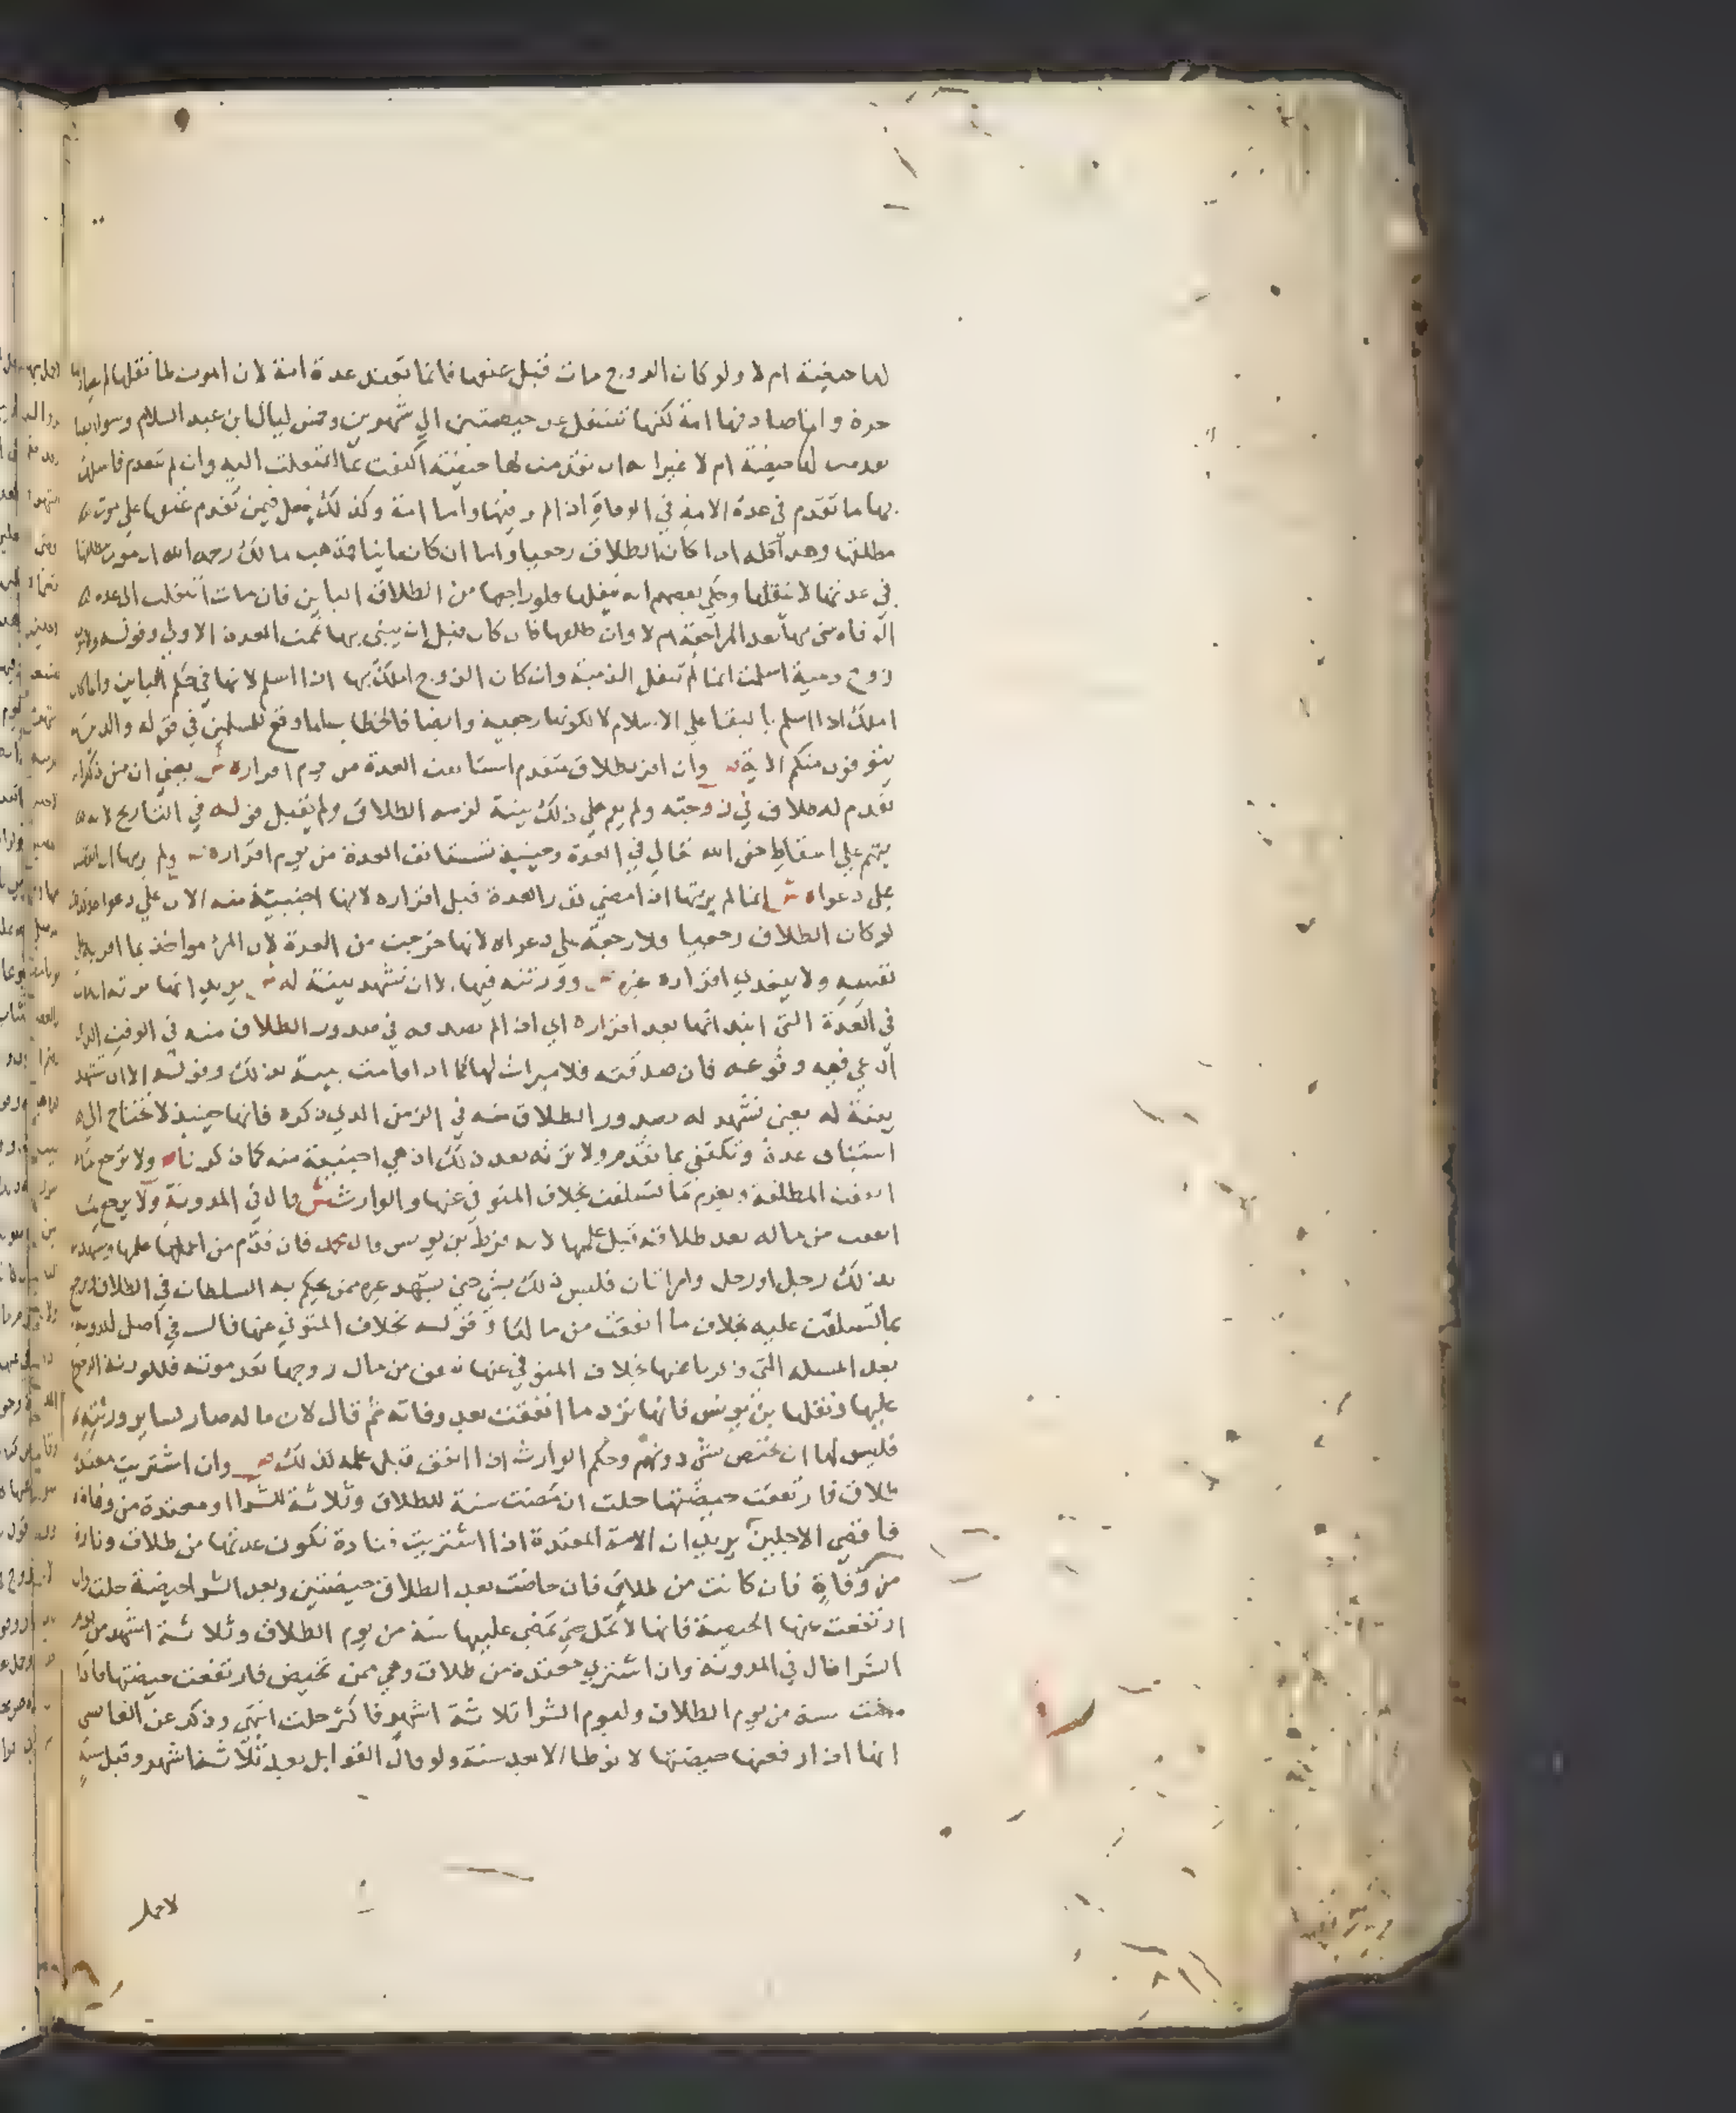 لها حيضة ام لا ولو كان الزوج مات قبل عتقها فانما تعتد عدة امة لان الموت لما نقلها لم يصادفها
حرة وانما صادفها امة لكنها تنتقل عن حيضتين الي شهرين وخمس ليال ابن عبد السلام وسوا
تقدمت لها حيضة ام لا غير انه ان تقدمت لها حيضة اكتفت بما انتقلت اليه وان لم تتقدم
بها ما تقدم في عدة الامة في الوفاة اذا لم وكذلك يفعل فيمن تقدم عتقها علي موت
مطلقها وهذا كله اذا كان الطلاق رجعيا واما ان كان باينا فمذهب مالك رحمه الله ان موت مطلقها
في عدتها لا ينقلها وحكي بعضهم انه ينقلها ولو راجعها من الطلاق الباين فان مات انتقلت الي عدة
الوفاة بني بها بعد المراجعة ام لا وان طلقها فان كان قبل ان يبني بها تمت العدة الاولي وقوله ولا
زوج ذمية اسلمت انما لم تنقل الذمية وان كان الزوج املك بها اذا اسلم لانها في حكم الباين وانما كان
املك اذا اسلم بالبقا علي الاسلام لا لكونها رجعية وايضا فالخطاب انما وقع للمسلمين في قوله والذين
يتوفون منكم الاية وان اقر بطلاق متقدم استانفت العدة من يوم اقراره ش يعني ان من ذكر انه
تقدم له طلاق في زوجته ولم يقم علي ذلك بينة لزمه الطلاق ولم يقبل قوله في التاريخ لانه
يتهم علي اسقاط حق الله تعالي في العدة وحينيذ تستانف العدة من يوم اقراره ولم يرثها ان انقضت
علي دعواه ش انما لم يرثها اذا مضي قدر العدة قبل اقراره لانها اجنبية منه الان علي دعواه
لو كان الطلاق رجعيا ولا رجعة علي دعواه لانها خرجت من العدة لان المرء مواخذ بما اقر به علي
نفسه ولا يتعدي اقراره غيره وورثته فيها الا ان تشهد بينة له ش يريد انها ترثه ان مات
في العدة التي ابتداتها بعد اقراره اي اذا لم تصدقه في صدور الطلاق منه في الوقت الذي
ادعي فيه وقوعه فان صدقته فلا ميراث لها كما اذا قامت بينة بذلك وقوله الا ان تشهد
بينة له يعني تشهد له بصدور الطلاق منه في الزمن الذي ذكره فانها حينيذ لا تحتاج الي
استيناف عدة وتكتفي بما تقدم ولا ترثه بعد ذلك اذ هي اجنبية منه كما ذكرنا ولا يرجع بما
انفقت المطلقة ويغرم ما تسلفت بخلاف المتوفي عنها والوارث ش قال في المدونة ولا يرجع بما
انفقت من ماله بعد طلاقه قبل علمها لانه فرط بن يونس قال محمد فان قدم من اعلمها
بذلك رجل او رجل وامراتان فليس ذلك بشي حتي يشهد عندها من يحكم به السلطان في الطلاق وترجع
بما تسلفت عليه بخلاف ما انفقت من مالها وقوله بخلاف المتوفي عنها قال في اصل المدونة
بعد المسلة التي ذكرنا عنها بخلاف المتوفي عنها تنفق من مال زوجها بعد موته فللورثة الرجوع
عليها ونقلها بن يونس فانها ترد ما انفقت بعد وفاته ثم قال لان ماله صار لساير ورثته
فليس لها ان تختص بشي دونهم وحكم الوارث اذا انفق قبل علمه كذلك ص وان اشتريت معتدة
طلاق فارتفعت حيضتها حلت ان مضت سنة للطلاق وثلاثة للشرا او معتدة من وفاة
فاقصي الاجلين يريد ان الامة المعتدة اذا اشتريت فتارة تكون عدتها من طلاق وتارة
من وفاة فان كانت من طلاق فان حاضت بعد الطلاق حيضتين وبعد الشرا حيضة حلت وان
ارتفعت عنها الحيضة فانها لا تحل حتي تمضي عليها سنة من يوم الطلاق وثلاثة اشهر من يوم
الشرا قال في المدونة وان اشتري معتدة من طلاق وهي ممن تحيض فارتفعت حيضتها فاذا
مضت سنة من يوم الطلاق وليوم الشرا ثلاثة اشهر فاكثر حلت انتهي وذكر عن القابسي
انها اذا رفعتها حيضتها لا توطا الا بعد سنة ولو قال القوابل بعد ثلاثة اشهر وقبل سنة
لا حمل